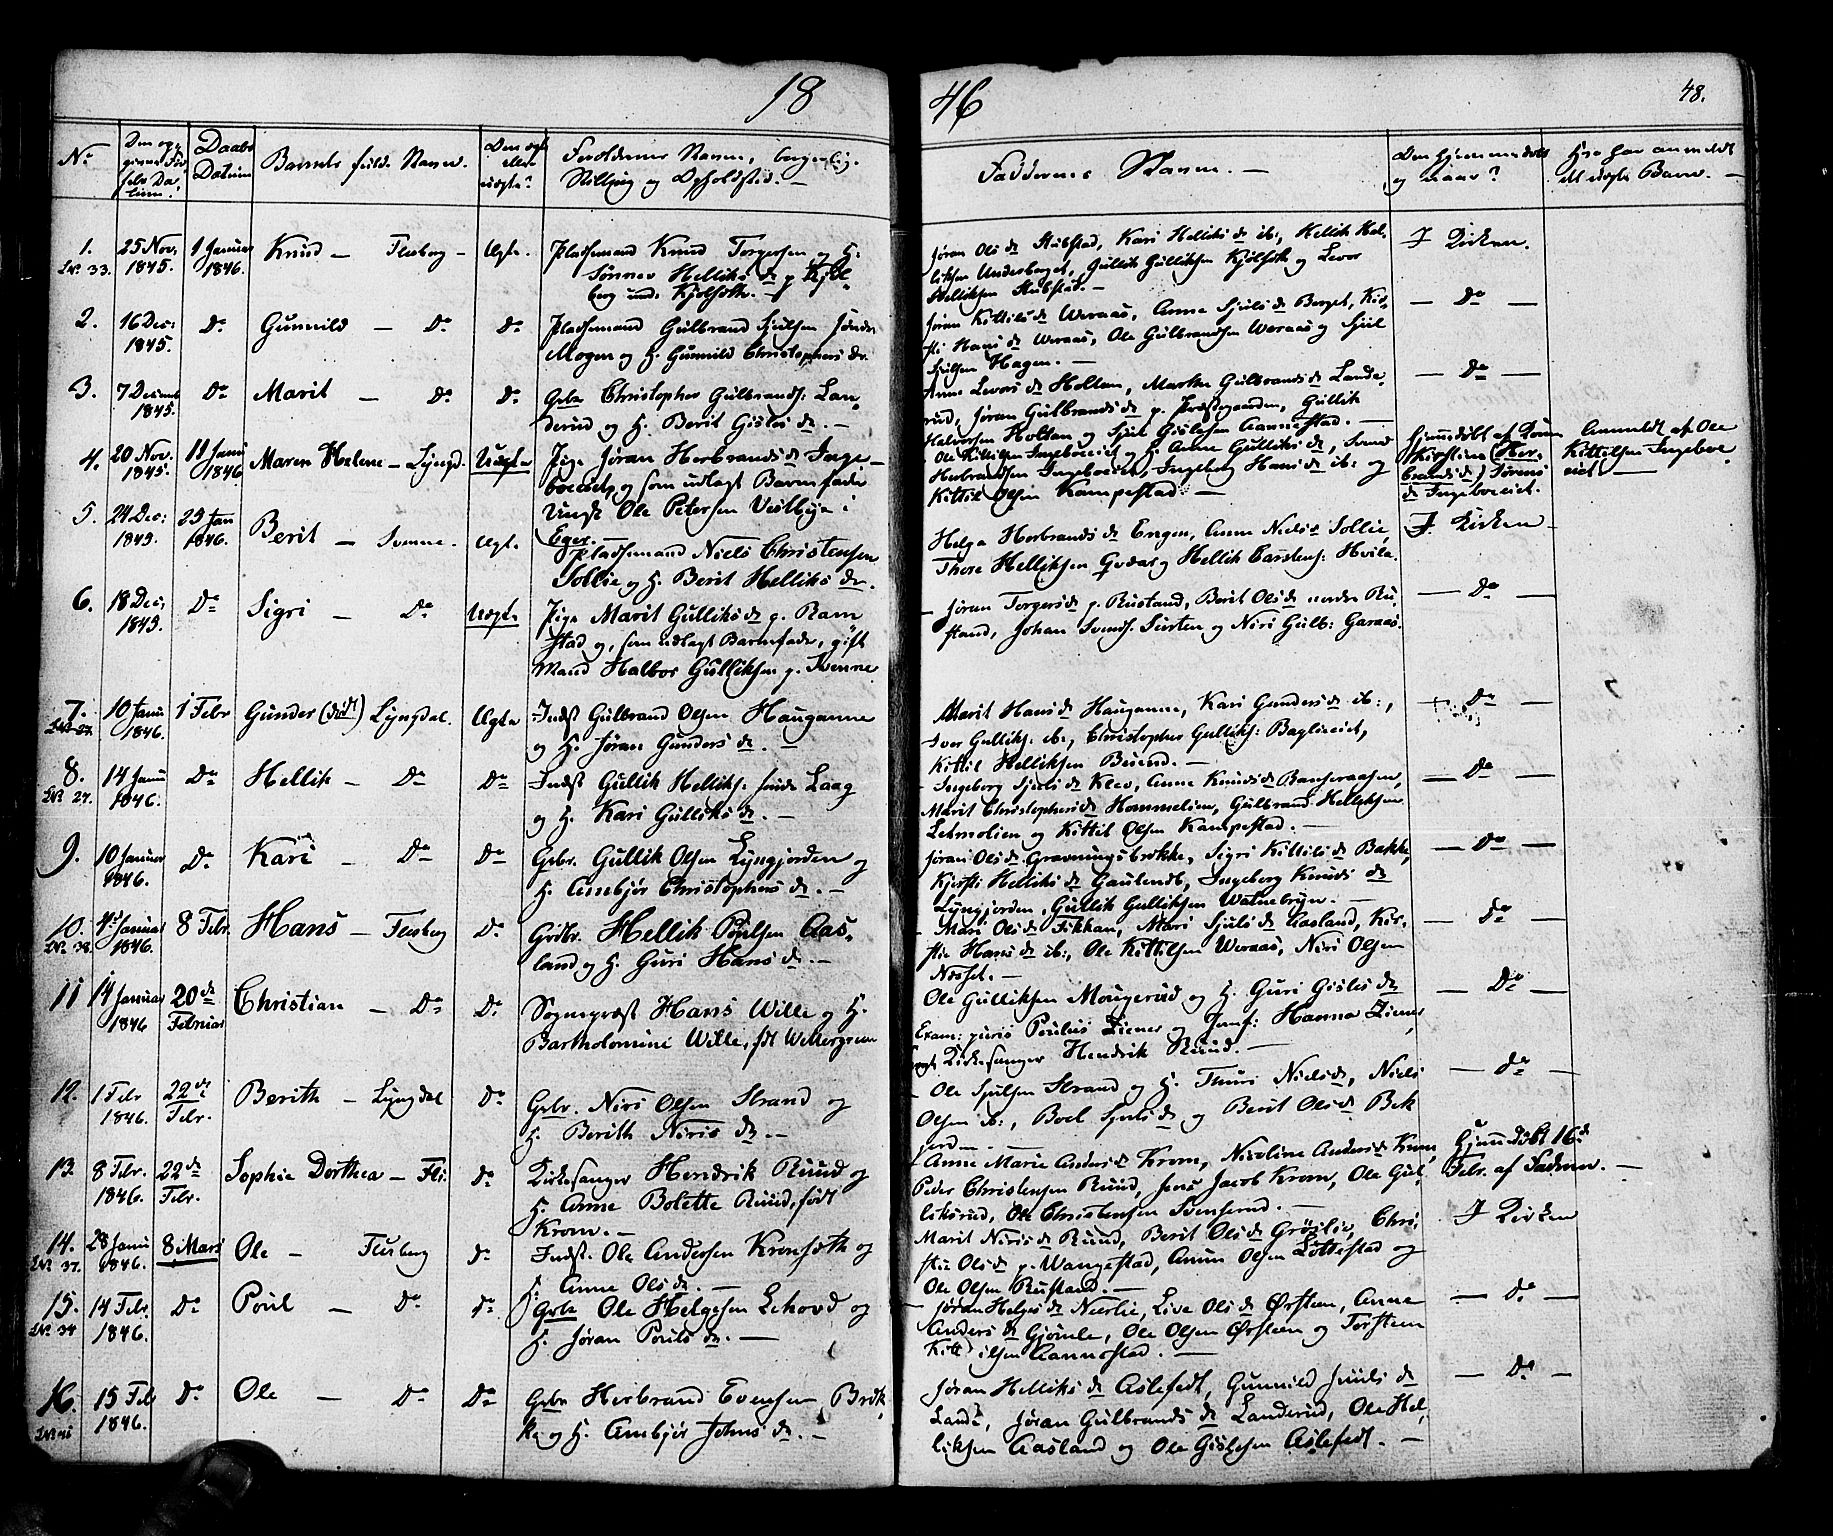 18 46
48.
No
Den opgivne Fødsels Datum.
Daabs Datum
Barnets fulde Navn.
Den ægte eller uægte?
Forældrenes Navne, borgerlig.
Stilling og Opholdsted. —
Faddernes Navne. —
Om hjemmedøbt og naar?
Hvo har anmeldt det uægte Barn. —
1. 25 Nov. 1845. 1 Januar 1846. Knud — Flesberg — Ægte.
Pladsemand Knud Torgersen og H.
Sønnev Helliks dr. p. Kjøl-
berg unde Kjølseth. —
Jøran Ols dr. Stubstad, Kari Helliks dr. ib:, Hellik Hel-
liksen Underberget, Gullik Gulliksen Kjølseth og Levor
Helliksen Stubstad. —
I Kirken.
2. 16 Dec: 1845. Do Gunnild — Do Do
Pladsemand Gulbrand Sjulsen Søndre
Mogen og H. Gunnild Christophers dr.
Jøran Kittils dr. Weraas, Anne Sjuls dr. Berget, Kir-
sti Hans dr. Weraas, Ole Gulbrandsen Weraas og Sjul
Sjulsen Hagen. —
— Do —
3. 7 Decemb 1845. Do Marit — Do Do
Grbr Christopher Gulbrands: Lan-
derud og H. Berit Gisles dr. —
Anne Levors dr. Holtan, Marthe Gulbrands dr. Lande-
rud, Jøran Gulbrands dr. p. Præstegaarden, Gullik
Halvorsen Holtan og Sjul Gislesen Aannestad. —
— Do —
4. 20 Nov. 1845. 11 Janu 1846 Maren Helene — Lyngd. Uægte
Pige Jøran Herbrands dr. Inge-
boeeiet, og som udlagt Barnefader
Ungk. Ole Petersen Vestbye i
Eger. —
Ole Kittilsen Ingeboeeiet og H. Anne Gulliks dr., Svend
Herbrandsen Ingeboeeiet, Ingeborg Hans dr. ib: og
Kittil Olsen Kampestad. —
Hjemmedøbt af Konen
Kirstine (Her-
brands dr.) Sørens
dr. Ingeboeeiet.
Anmeldt af Ole
Kittilsen Ingeboe
eiet —
5. 24 Dec: 1845. 25 Jan 1846. Berit — Svenne. Ægt.
Pladsemand Niels Christensen
Sollie og H. Berit Helliks dr.
Helga Herbrands dr. Engen, Anne Niels dr. Sollie,
Thore Helliksen Gvaar og Hellik Carstens: Hvila
I Kirken —
6. 18 Dec; 1845. Do Sigri — Do Uægt.
Pige Marit Gulliks dr. p. Ram
stad og, som udlagt Barnefader, gift
Mand Halvor Gulliksen p. Svenne
— Jøran Torgers dr. p. Rustand, Berit Ols dr. nordre Ru-
stand, Johan Svends. Sørsten og Niri Gulb: Garaas.
— Do —
7. 10 Janu 1846. 1 Febr Gunder (død) Lyngdal. Ægte
Indst Gulbrand Olsen Hauganne
og H. Jøran Gunders dr. —
Marit Hans dr. Hauganne, Kari Gunders dr. ib:,
Iver Gulliks: ib:, Christopher Gulliks: Baglieeiet,
Kittil Helliksen Buind. —
— Do —
8. No. 27. 14 Janu 1846. Do Hellik — Do Do
Indst Gullik Helliks: Laag
og H. Kari Gulliks dr. —
— Ingeborg Sjuls dr. Klev, Anne Knuds dr. Bangeraasen,
Marit Christophers dr. Hommelien, Gulbrand Helliksen
Letmolien og Kittil Olsen Kampestad. —
— Do —
9. 10 Januar 1846. Do Kari — Do Do
Grbr. Gullik Olsen Lyngjorden og
H. Anbjør Christophers dr. —
Jøran Ols dr. Gravningsbrække, Sigri Kittils dr. Bakke,
Kjersti Helliks dr. Gautendt, Ingeborg Knuds dr.
Lyngjorden, Gullik Gulliksen Watnebryn. —
— Do —
10. No. 38. 4de Januar 1846. 8 Febr. Hans — Flesberg Do
Grdbr. Hellik Poulsen Aas-
land og H. Guri Hans dr. —
— Mari Ols dr. Fikkan, Mari Sjuls dr. Aasland, Kir-
stie Hans dr. ib:, Ole Kittilsen Weraas, Niri Olsen
Næset. —
— Do —
11 14 Januar 1846 20de Februar Christian — Do Do
Sognepræst Hans Wille og H.
Bartholomine Wille, fdt Wettergreen
Ole Gulliksen Mougerud og H. Guri Gisles dr.
Exam: juris Poulus Ziener og Jomf: Hanna Ziener,
Kirkesanger Hendrik Ruud. —
— Do —
12. 1 Febr 1846. 22de Febr. Berith — Lyngdal Do
Grbr. Niri Olsen Strand og
H. Berith Niris dr. —
— Ole Sjulsen Strand og H. Thuri Niels dr., Niels
Olsen ib:, Boel Sjuls dr. og Berit Ols dr. Bek
jord —
— Do —
13. 8 Febr. 1846. 22de Febr. Sophie Dorthea — Fl: Do
Kirkesanger Hendrik Ruud og
H. Anne Bolette Ruud, født
Krom. —
— Anne Marie Anders dr. Krom, Nicoline Anders dr. Krom,
Peder Christensen Ruud, Jens Jacob Krom, Ole Gul-
liksrud, Ole Christensen Svenserud. —
Hjemdøbt 16de
Febr. af Faderen. —
14. No. 37. 28 Janu 1846. 8 Mars Ole — Flesberg Do
Indst. Ole Andersen Kronseth og
H. Anne Ols dr. —
Marit Niris dr. Ruud, Berit Ols dr. Grøslie, Chri-
stie Ols dr. p. Wangestad, Anun Olsen Løttestad og
Ole Olsen Rustand. —
I Kirken
15. No. 34 14 Febr. 1846. Do Poul — Do Do
Grbr Ole Helgesen Lehovd og
H. Jøran Pouls dr. —
— Jøran Helges dr. Nærlie, Live Ols dr. Ørsteen, Anne
Anders dr. Gjømle, Ole Olsen Ørsteen og Torsteen
Kittilsen Aannestad. —
— Do —
16. 15 Feb 1846. Do Ole — Do Do
Grbr Herbrand Evensen Bræk-
ke og H. Anbjør Johns dr. —
Jøran Helliks dr. Aslefedt, Gunnild Juuls dr.
Lande, Jøran Gulbrands dr. Landerud, Ole Hel-
liksen Aasland og Ole Gislesen Aslefedt. —
— Do —